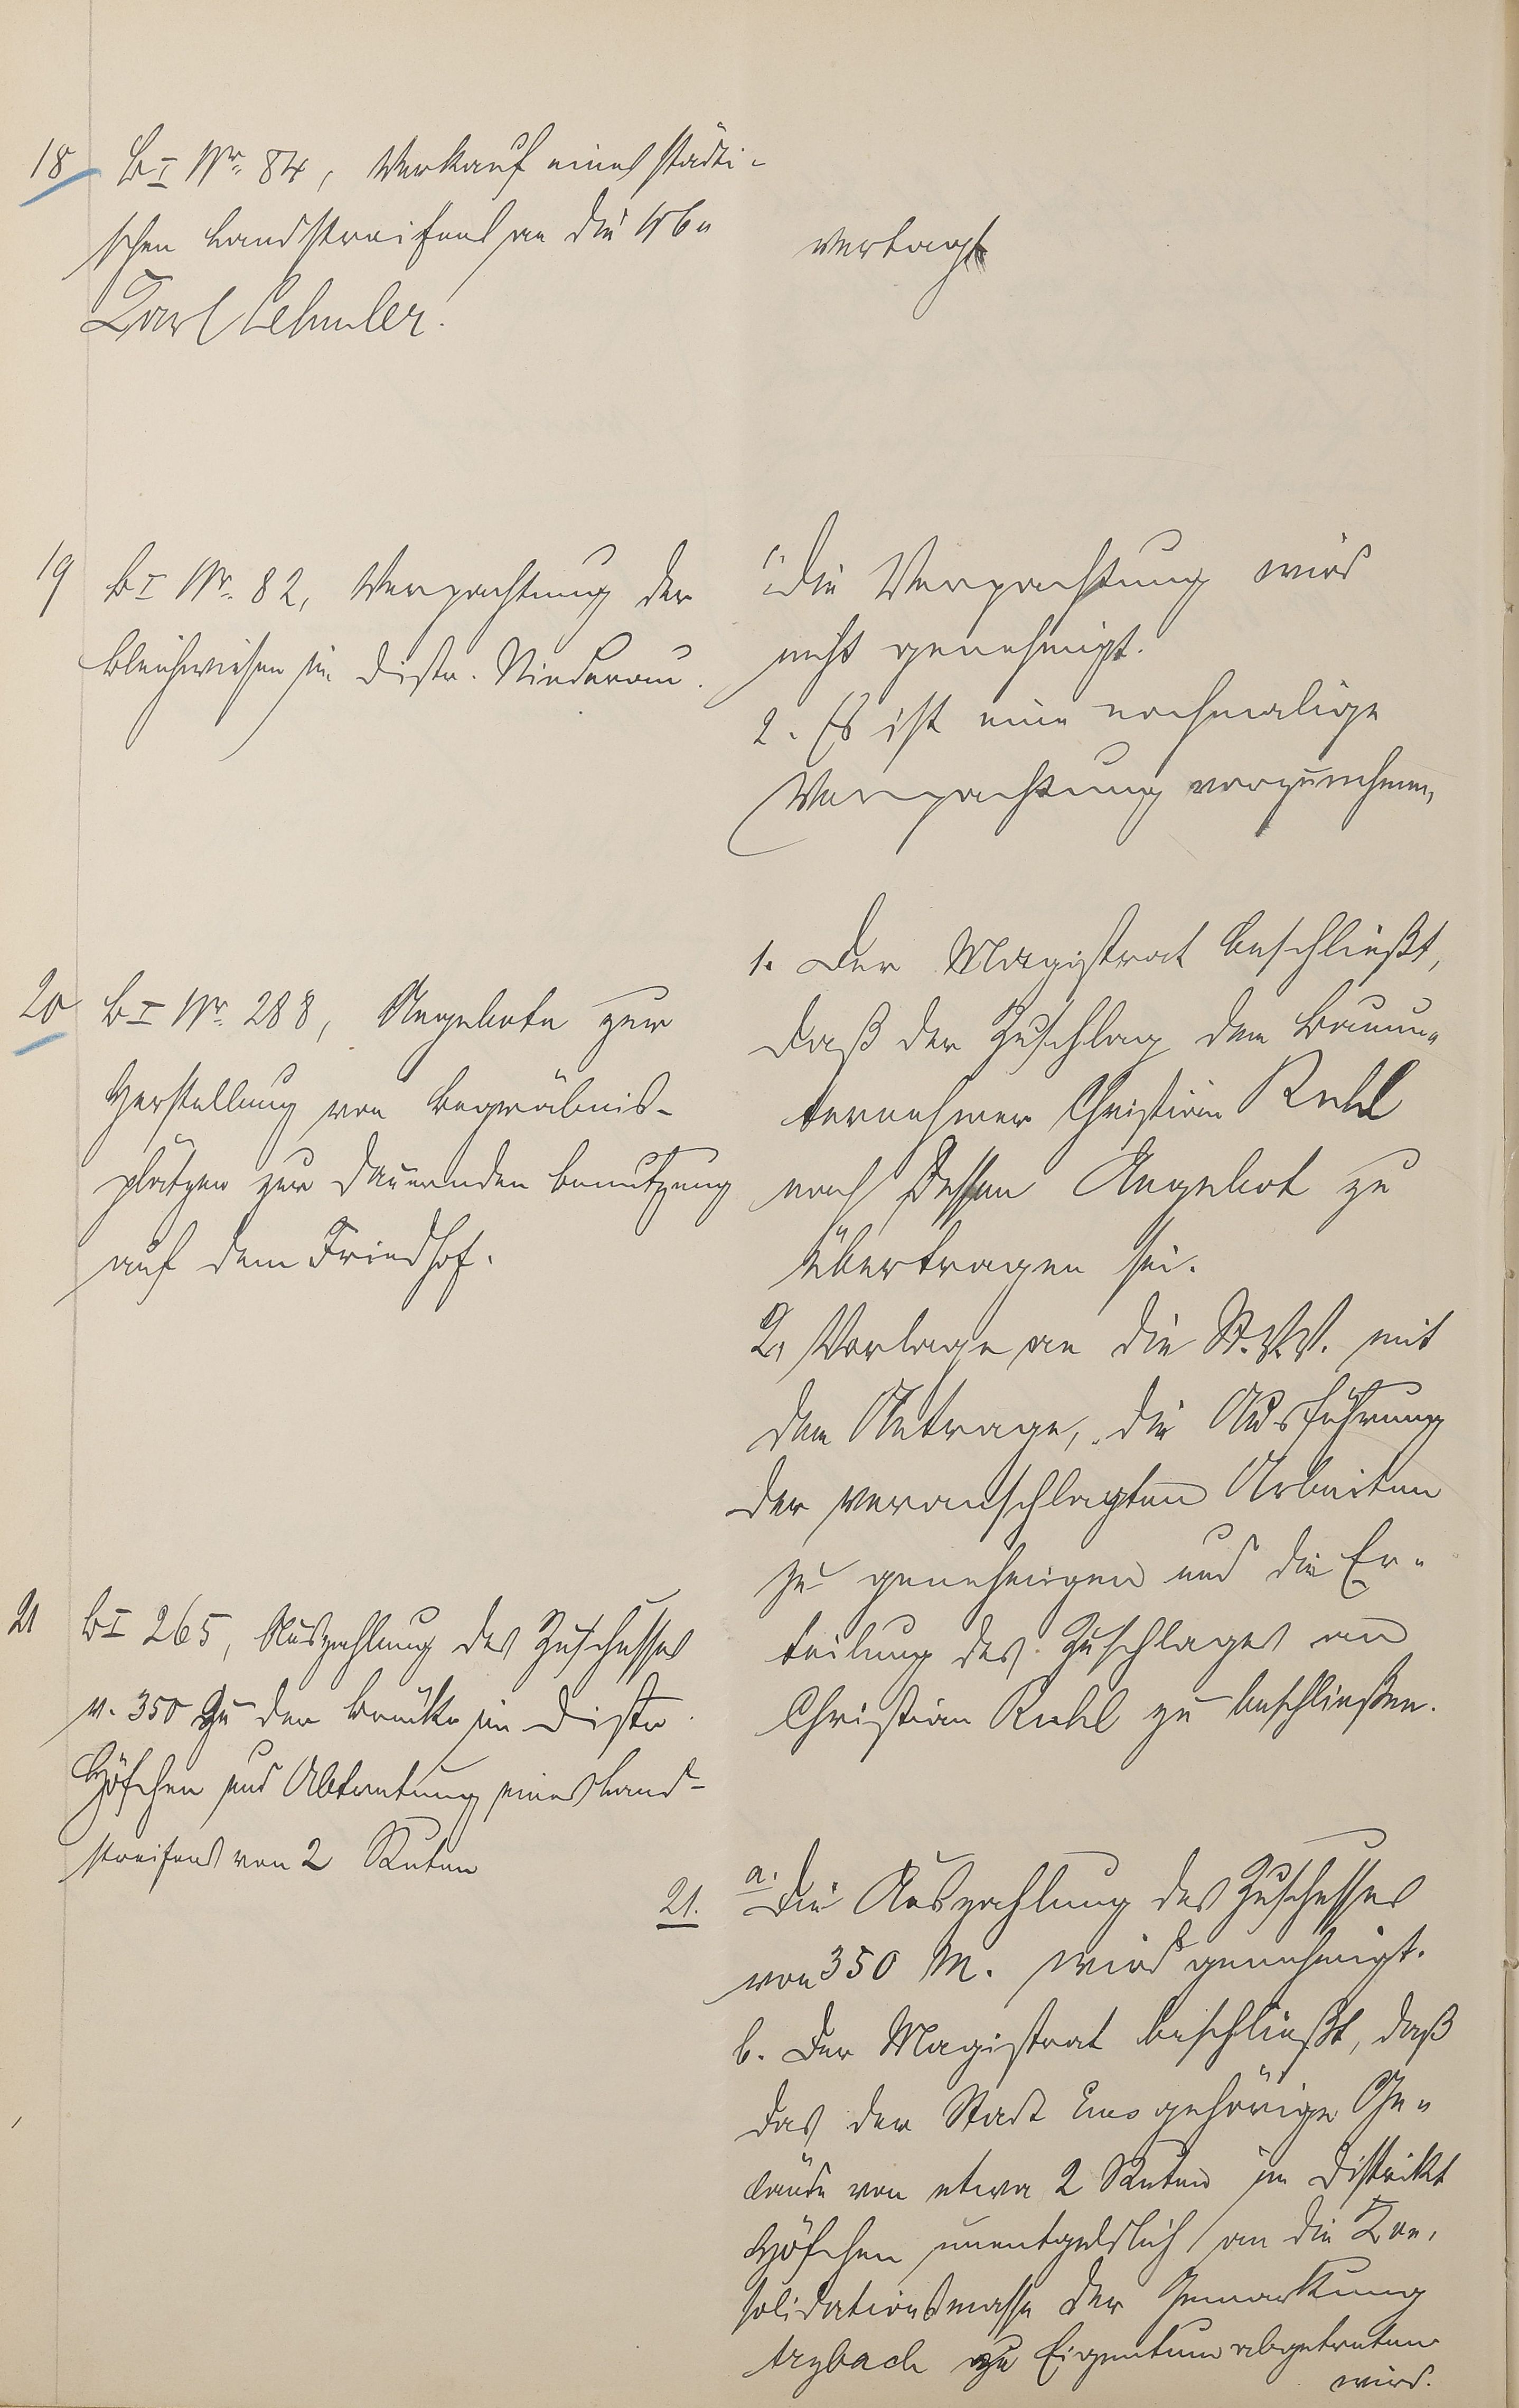 18 B I Nr. 84, Verkauf eines städti-
schen Landstreifens an die Wb.
Karl Lehmler.
vertagt
19 B I Nr. 82, Verpachtung der
Bleichwiesen im Distr. Niederau.
1. Die Verpachtung wird
nicht genehmigt.
2. Es ist eine nochmalige
Verpachtung vorzunehmen,
20 B I Nr. 288, Angebote zur
Herstellung von Begräbnis-
plätzen zur dauernden Benutzung
auf dem Friedhof.
1. Der Magistrat beschließt,
daß der Zuschlag dem Bauun-
ternehmer Christian Ruhl
nach dessen Angebot zu
übertragen sei.
2. Vorlage an die St.V.V. mit
dem Antrage, die Ausführung
der veranschlagten Arbeiten
zu genehmigen und die Er-
teilung des Zuschlages an
Christian Ruhl zu beschließen.
21 B I 265, Auszahlung des Zuschusses
v. 350 zu der Brücke im Distr.
Höfchen und Abtretung eines Land-
streifens von 2 Ruten
21. a. Die Auszahlung des Zuschusses
von 350 M. wird genehmigt.
b. Der Magistrat beschließt, daß
das der Stadt Ems gehörige Ge-
lände von etwa 2 Ruten im Distrikt
Höfchen unentgeldlich an die Kon-
solidationsmasse der Gemarkung
Arzbach zu Eigentum abgetreten
wird.